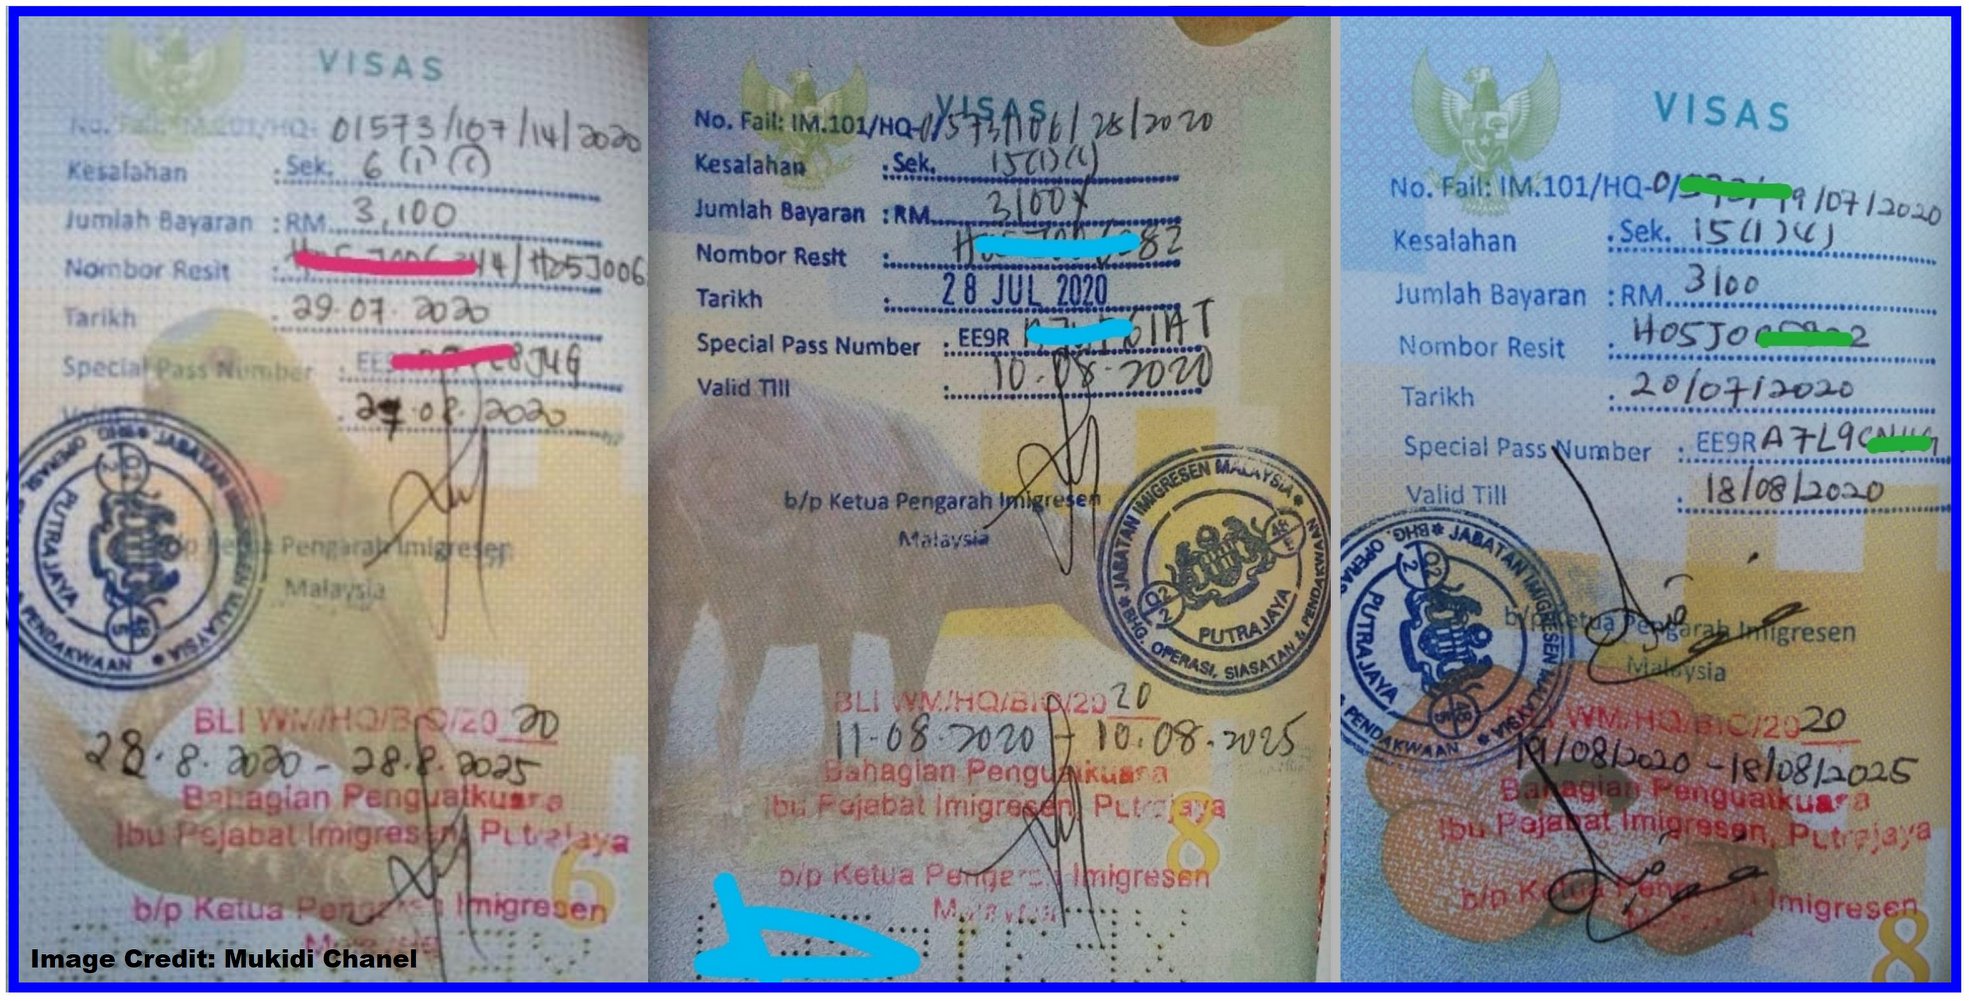 VISAS
01573/107/14/2020
Kesalahan : Sek. 6 (1) (c)
Jumlah Bayaran : RM 3,100
Nombor Resit 44/H05J006
Tarikh 29.07.2020
Special Pass Number : 8J4G
27.08.2020
b/p Ketua Pengarah Imigresen
Malaysia
JABATAN IMIGRESEN MALAYSIA
PENDAKWAAN
PUTRAJAYA
BLI WM/HQ/BIC/20 20
28.8.2020 - 28.8.2025
Bahagian Penguatkuasa
Ibu Pejabat Imigresen, Putrajaya
b/p Ketua Pengarah Imigresen
Malaysia
6
Image Credit: Mukidi Chanel
VISAS
No. Fail: IM.101/HQ-01573/106/28/2020
Kesalahan : Sek. 15(1)(c)
Jumlah Bayaran : RM 3100X
Nombor Resit : 82
Tarikh : 28 JUL 2020
Special Pass Number : EE9R 61AT
Valid Till : 10.08.2020
b/p Ketua Pengarah Imigresen
Malaysia
JABATAN IMIGRESEN MALAYSIA
BHG. OPERASI, SIASATAN & PENDAKWAAN
PUTRAJAYA
BLI WM/HQ/BIC/20 20
11.08.2020 - 10.08.2025
Bahagian Penguatkuasa
Ibu Pejabat Imigresen, Putrajaya
b/p Ketua Pengarah Imigresen
Malaysia
8
VISAS
No. Fail: IM.101/HQ-0/ 9/07/2020
Kesalahan : Sek. 15(1)(4)
Jumlah Bayaran : RM 3100
Nombor Resit : H05J0 2
Tarikh : 20/07/2020
Special Pass Number : EE9R A7L9C
Valid Till : 18/08/2020
b/p Ketua Pengarah Imigresen
Malaysia
JABATAN IMIGRESEN MALAYSIA
BHG. OPERAS
PENDAKWAAN
PUTRAJAYA
WM/HQ/BIC/20 20
19/08/2020 - 18/08/2025
Bahagian Penguatkuasa
Ibu Pejabat Imigresen, Putrajaya
b/p Ketua Pengarah Imigresen
8